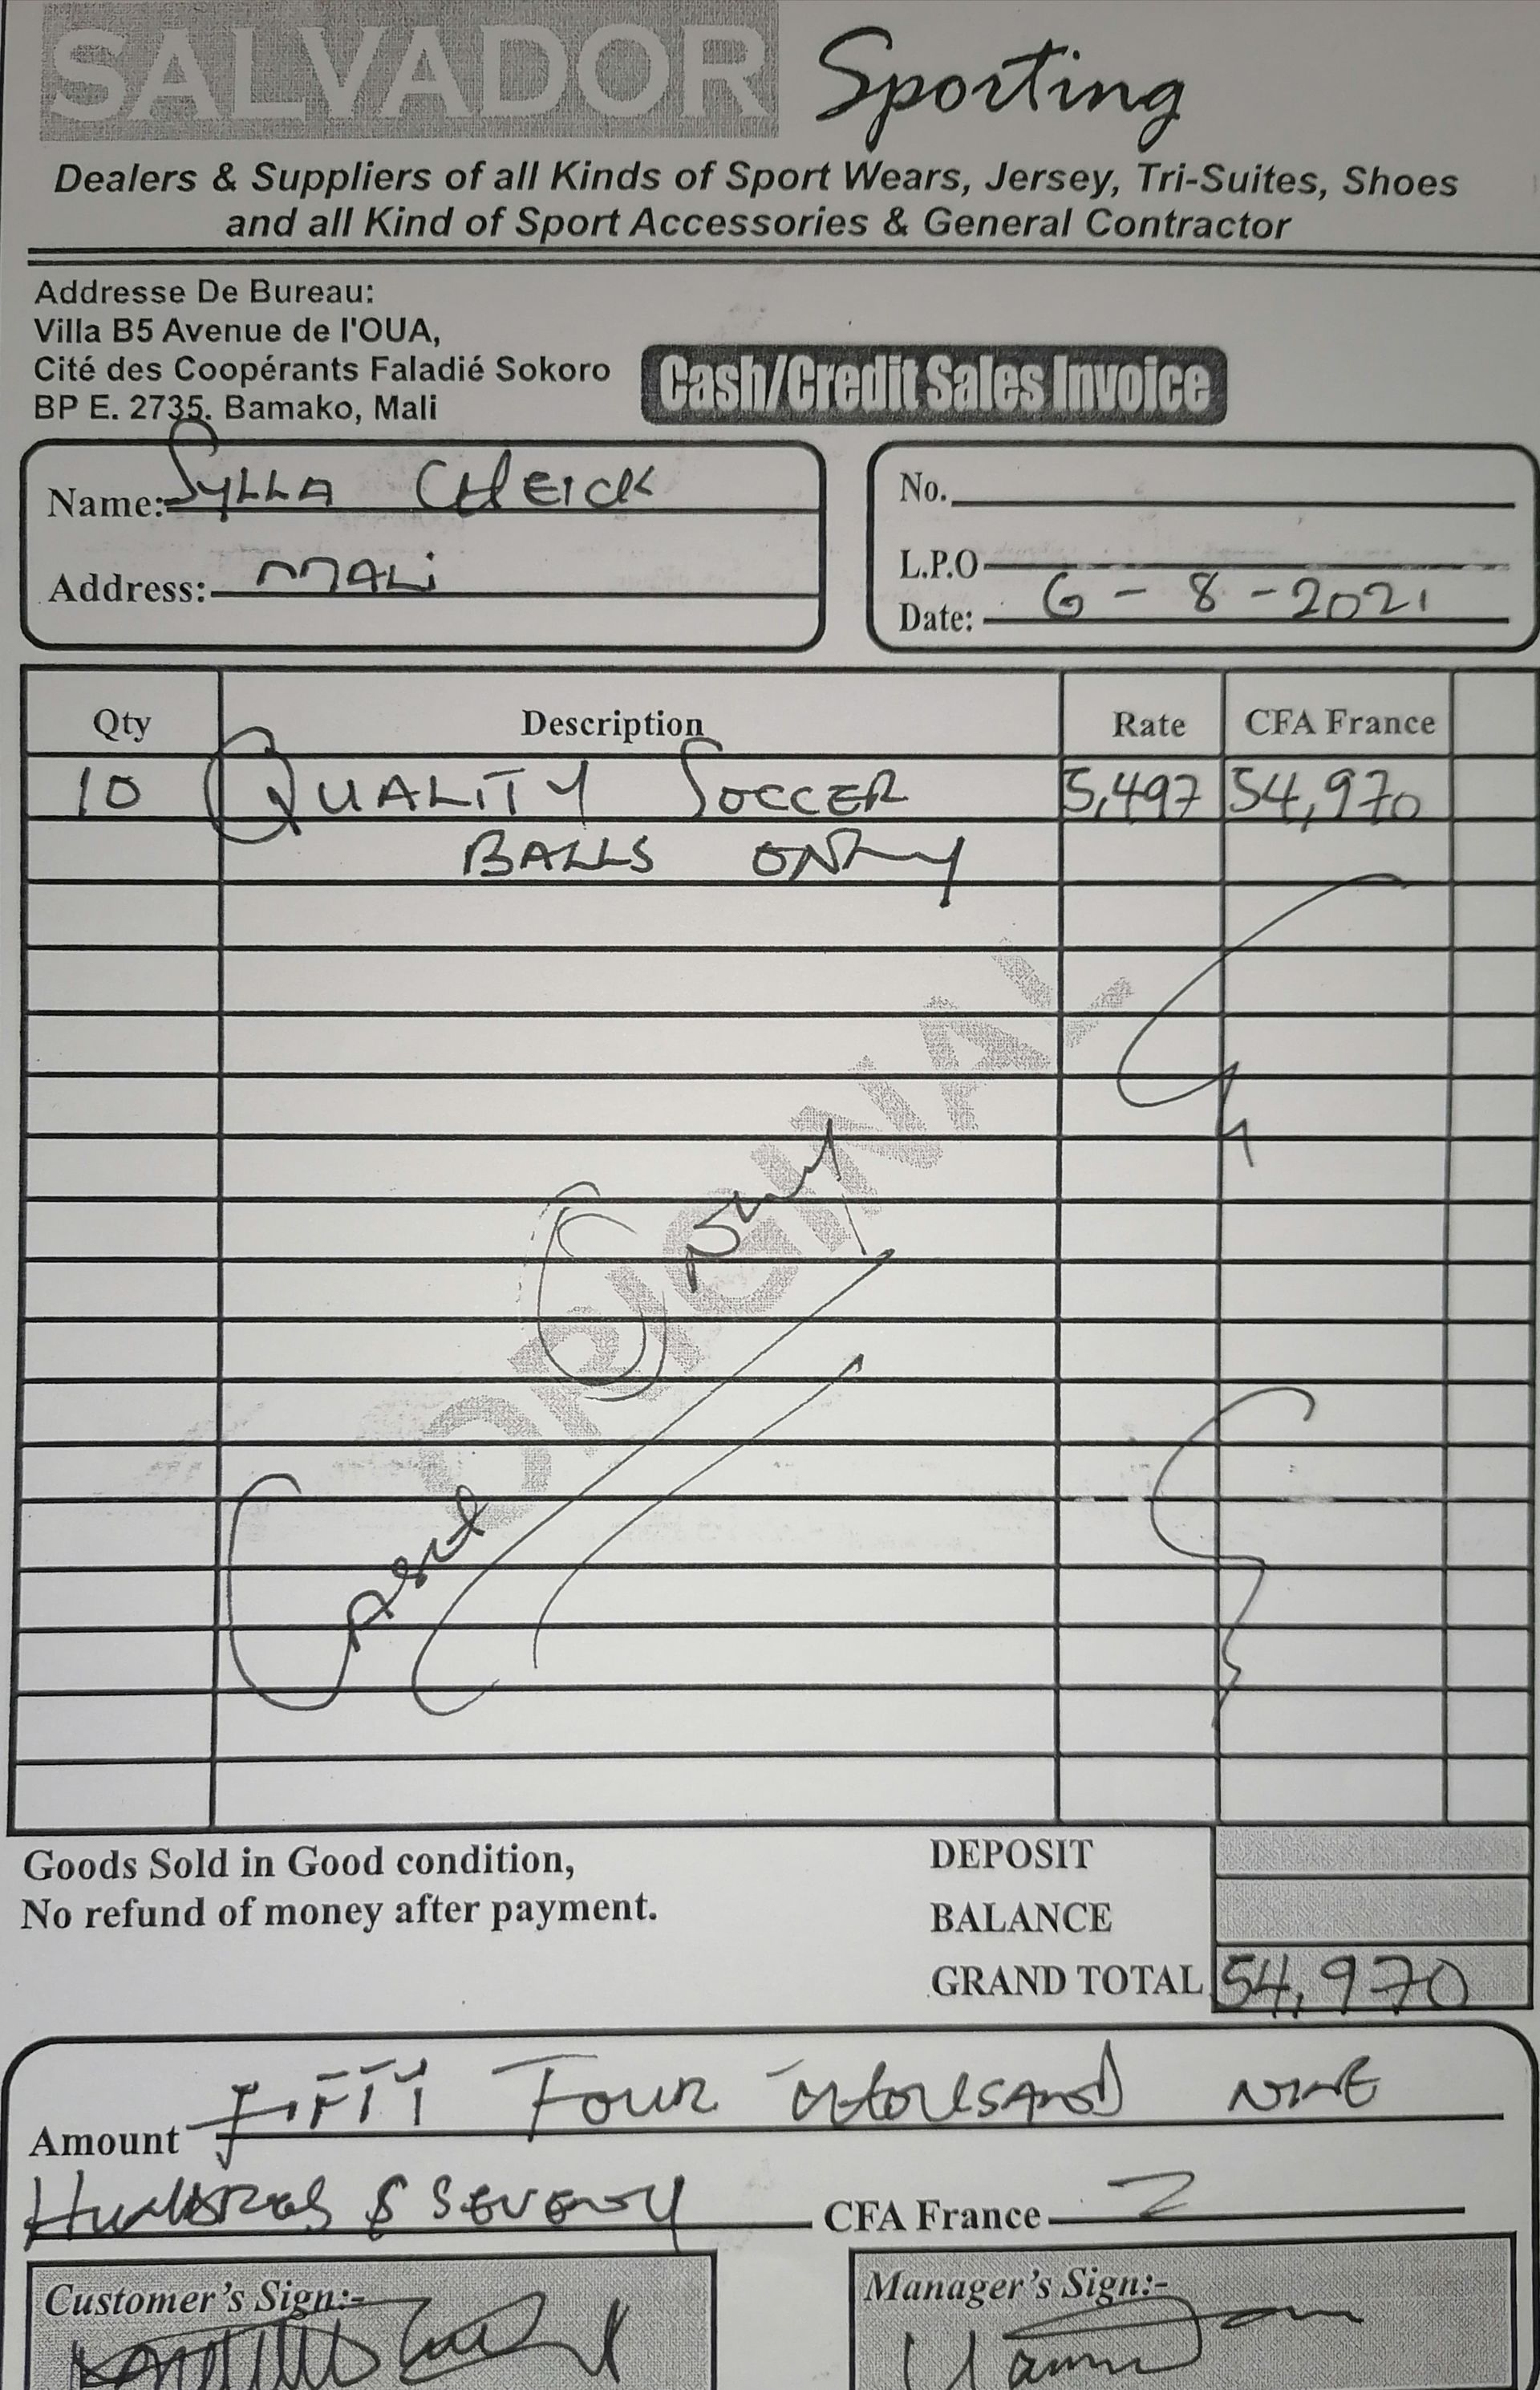 SALVADOR Sporting
Dealers & Suppliers of all Kinds of Sport Wears, Jersey, Tri-Suites, Shoes
and all Kind of Sport Accessories & General Contractor
Addresse De Bureau:
Villa B5 Avenue de l'OUA,
Cité des Coopérants Faladié Sokoro
BP E. 2735. Bamako, Mali
Cash/Credit Sales Invoice
Name: SYLLA CHEICK
Address: MALi
No.
L.P.O
Date: 6 - 8 - 2021
Qty Description Rate CFA France
10 QUALITY SOCCER 5,497 54,970
BALLS ONLY
ORIGINAL
Goods Sold in Good condition,
No refund of money after payment.
DEPOSIT
BALANCE
GRAND TOTAL 54,970
Amount FIFTY FOUR THOUSAND NINE
HUNDRED & SEVENTY CFA France
Customer's Sign:-
Manager's Sign:-